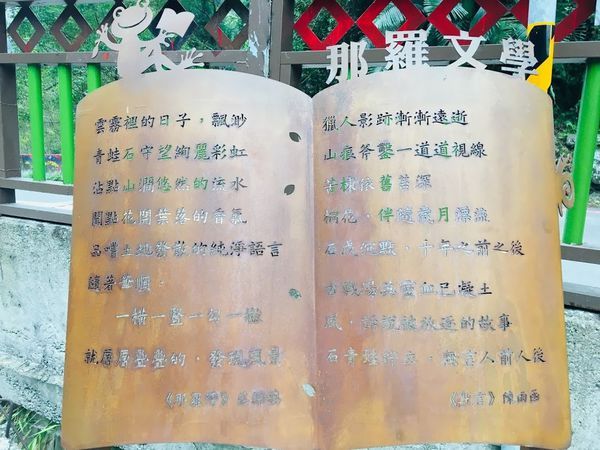 那羅文學
雲霧裡的日子，飄渺
青蛙石守望絢麗彩虹
沾點山澗悠然的流水
聞點花開葉落的香氣
品嚐土地發散的純淨語言
隨著筆順，
一橫一豎一勾一撇
就層層疊疊的，發現風景
《那羅詩》
獵人影跡漸漸遠逝
山痕斧鑿一道道視線
苦楝依舊苦深
桐花，伴隨歲月漂流
石，千年之前之後
古戰場英靈血已凝土
風，訴說被放逐的故事
石青蛙佇立，無言人前人後
《默言》陳雨